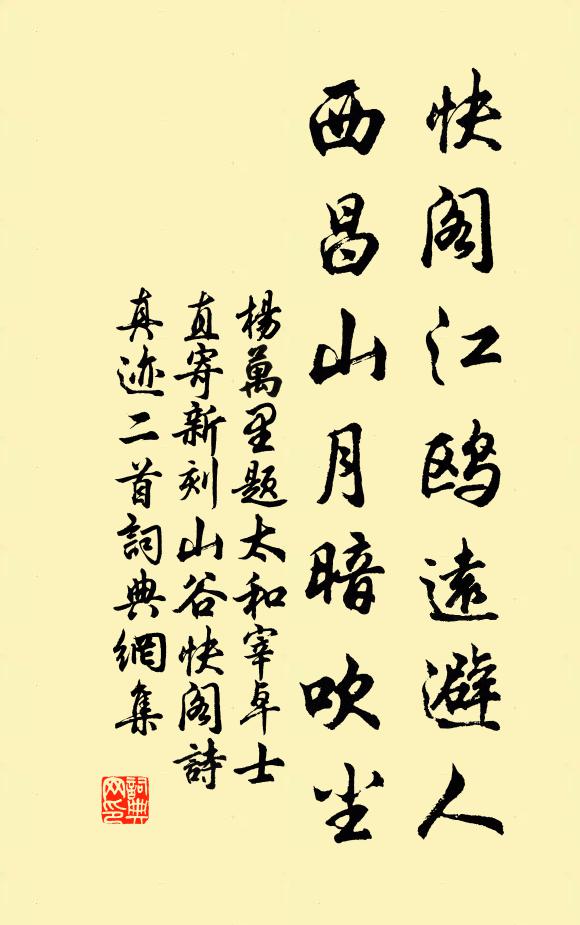 快阁江鸥遠避人
西昌山月暗吹尘
楊萬里题太和宰卓士
直寄新刻山谷快阁詩
真迹二首詞典網集
詞典网印